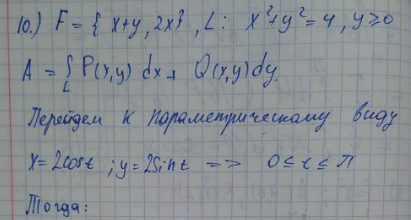 10.) F = { x+y, 2x}, L: x²+y²=4, y≥0
A = ∫ P(x,y) dx + Q(x,y)dy
L
Перейдем к параметрическому виду
x=2cost ; y=2sint => 0≤t≤π
Тогда: